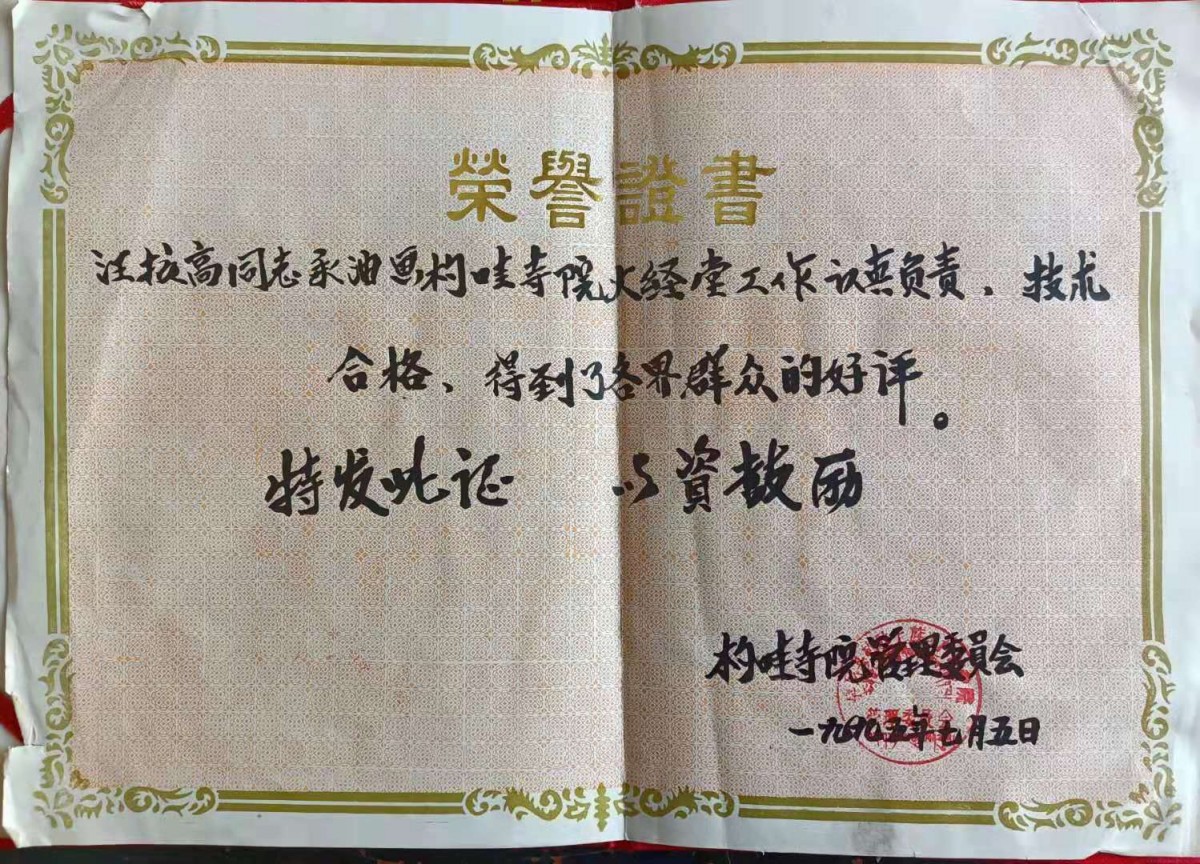 榮譽證書
汪拉高同志承油画构哇寺院大经堂工作认真负责、技术
合格、得到了各界群众的好评。
特发此证 以資鼓励
构哇寺院管理委員会
一九九五年七月五日